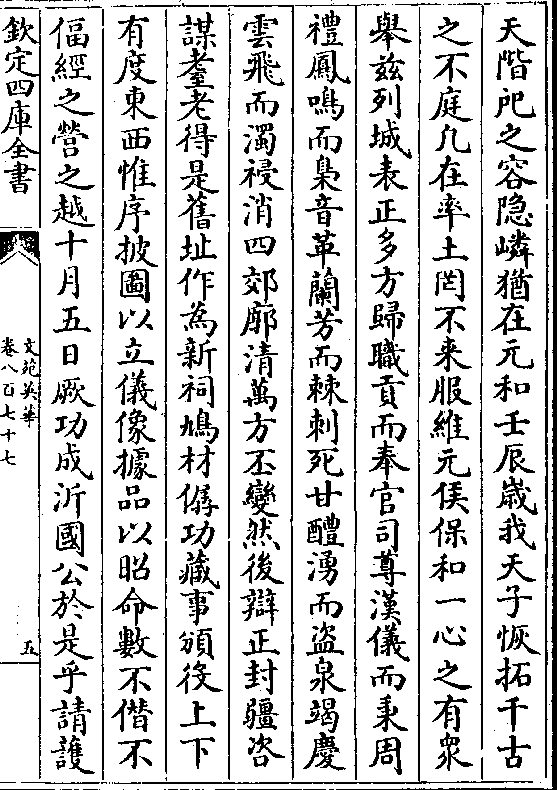 天階戺之容隐嶙猶在元和壬辰嵗我天子恢拓千古
之不庭凡在率土罔不来服維元侯保和一心之有衆
舉兹列城表正多方歸職貢而奉官司尊漢儀而秉周
禮鳳鳴而梟音革蘭芳而棘刺死甘醴湧而盗泉竭慶
雲飛而濁祲消四郊廓清萬方丕變然後辯正封疆咨
謀耋老得是舊址作為新祠鳩材僝功蕆事頒役上下
有度東西惟序披圖以立儀像據品以昭命數不僭不
偪經之營之越十月五日厥功成沂國公於是乎請護
欽定四庫全書
文苑英華
卷八百七十七
五